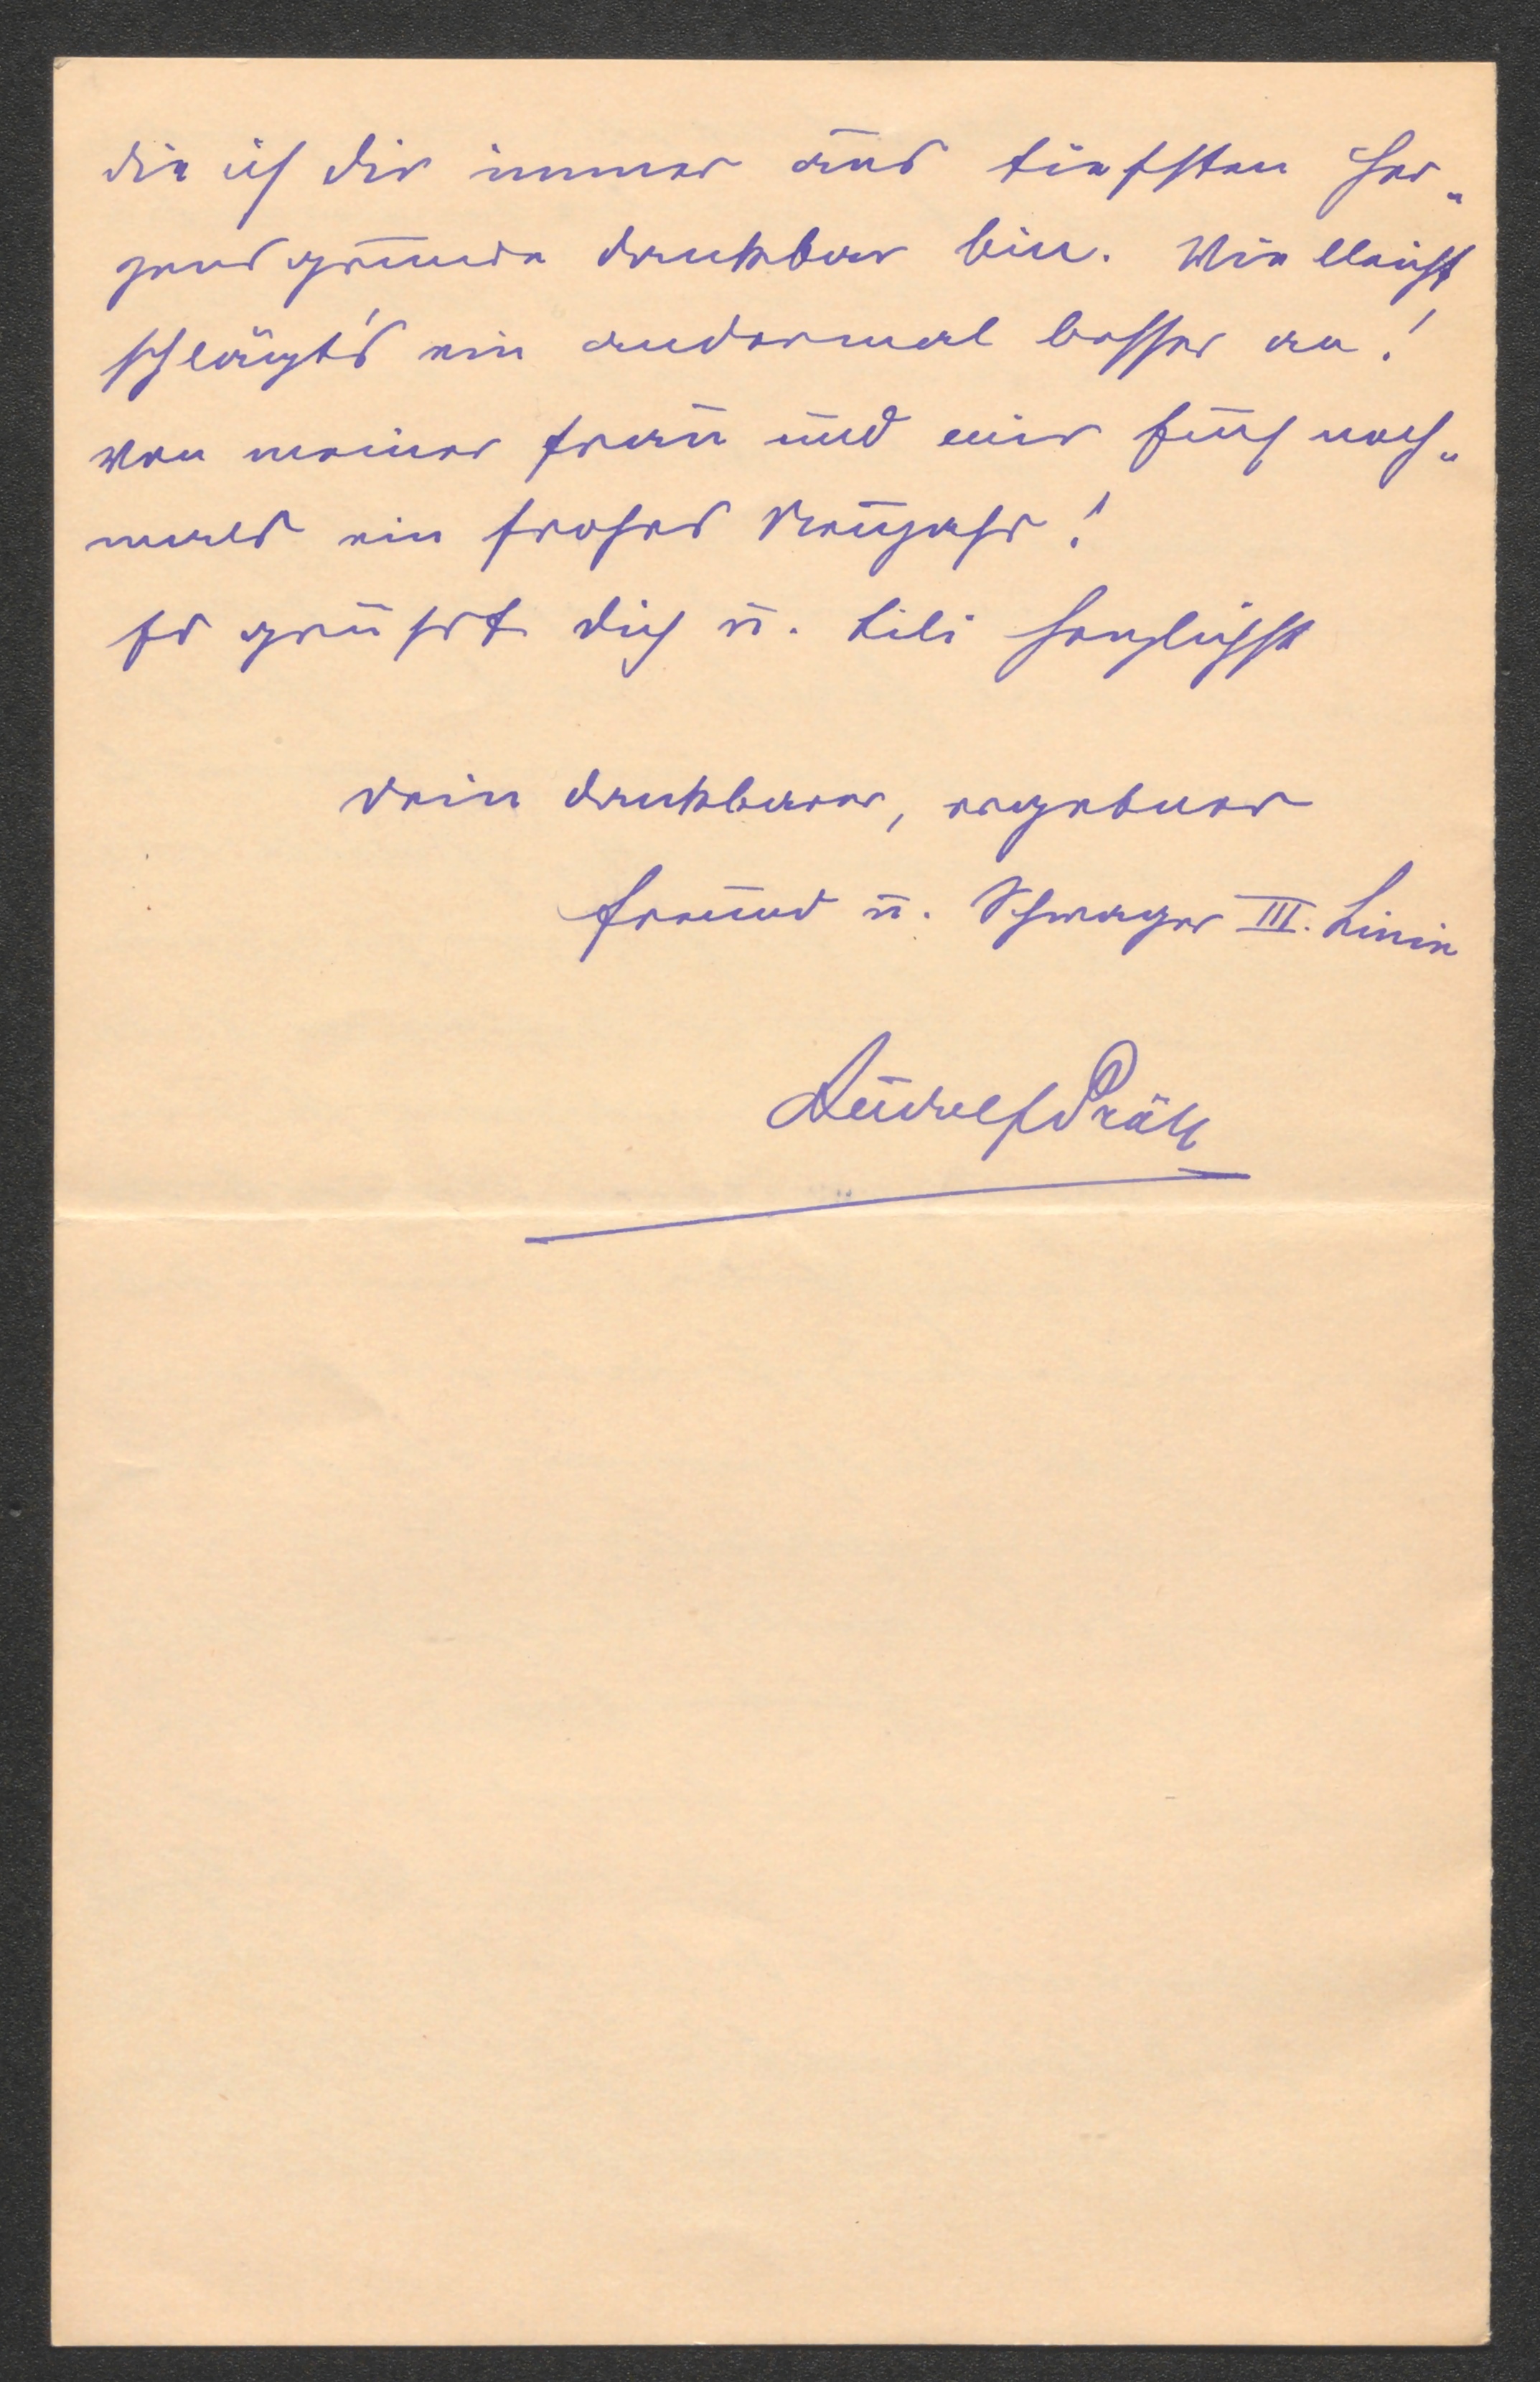 die ich dir immer aus tiefsten Her-
zensgrunde dankbar bin. Vielleicht
schlägt's ein andermal besser an!
Von meiner Frau und mir Euch noch-
mals ein frohes Neujahr!
Es grüßt Dich u. Lili herzlichst
Dein dankbarer, ergebener
Freund u. Schwager III. Linie
Rudolf Präll